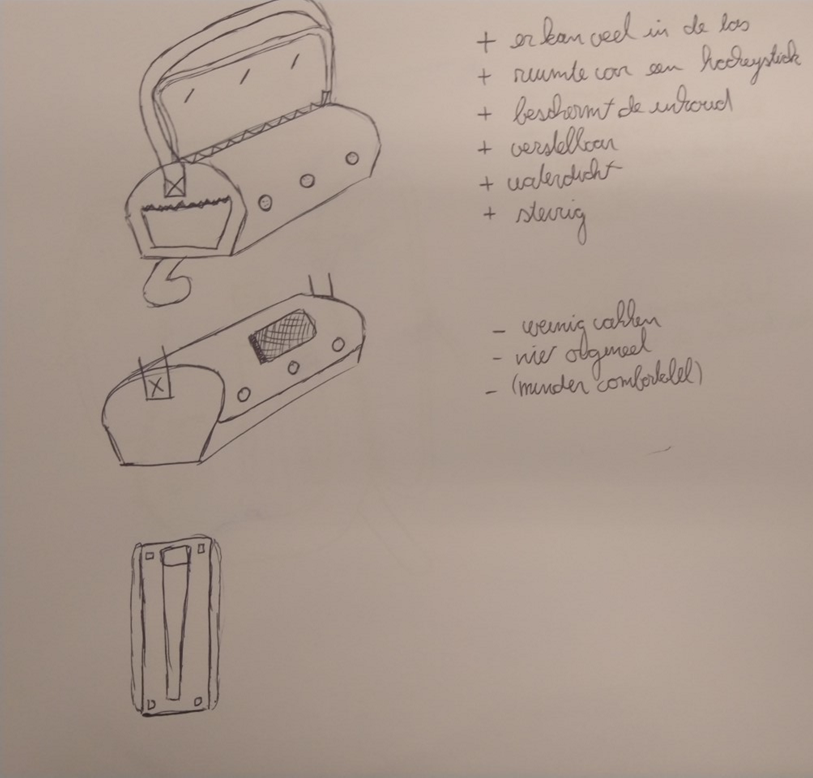 + er kan veel in de tas
+ ruimte voor een hockeystick
+ beschermt de inhoud
+ verstelbaar
+ waterdicht
+ stevig
- weinig vakken
- nier orgineel
- (minder comfortabel)